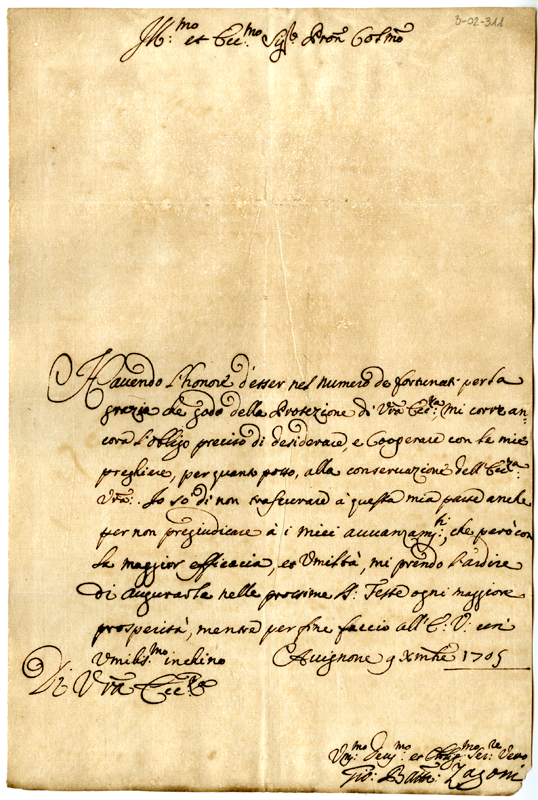 3-02-311
Ill:mo et Ecc:mo Sig:re Pron Colmo
Havendo l'honore d'esser nel numero de fortunati per la
grazia che godo della Protezione di Vra Ecc:za mi corre an-
cora l'obligo preciso di desiderare, e Cooperare con le mie
preghiere, per quanto posso, alla conservazione dell'Ecc:za
Vra: Io so di non trascurare à questa mia parte anche
per non pregiudicare à i miei avvanzam:ti, che però con
la maggior efficacia, et Umiltà, mi prendo l'ardire
di augurarla nelle prossime S:te Feste ogni maggiore
prosperità, mentre per fine faccio all'E: V:
Umiliss:mo inchino Avignone 9 Xmbre 1705
Di Vra Ecc:za
Um:mo Dev:mo et Obblig:mo Ser:re Vero
Gio: Batta: Zagoni